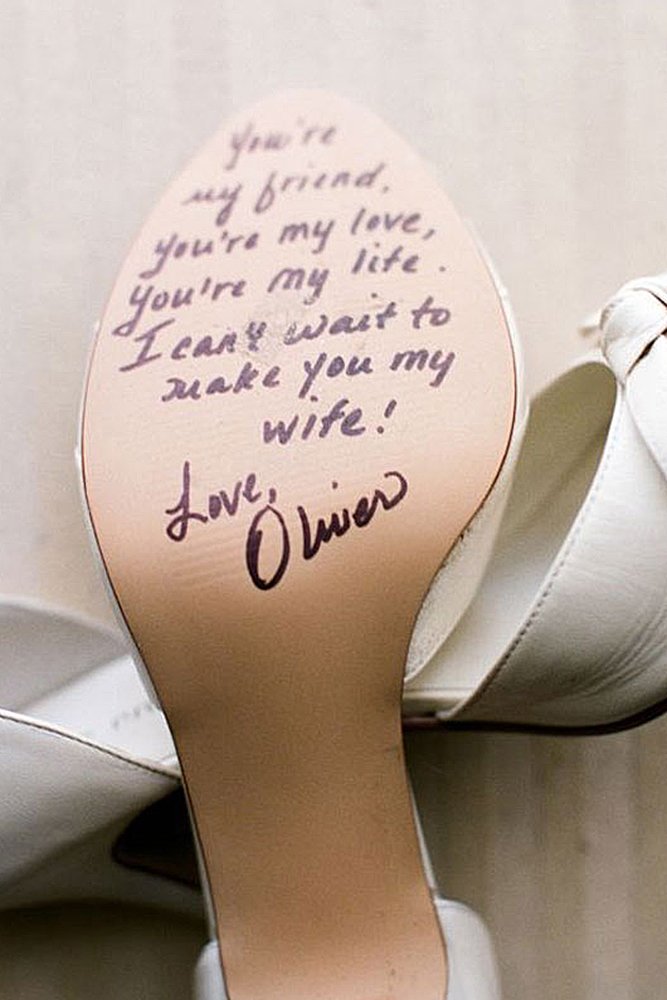 You're
my friend,
you're my love,
you're my life.
I can't wait to
make you my
wife!
Love,
Oliver